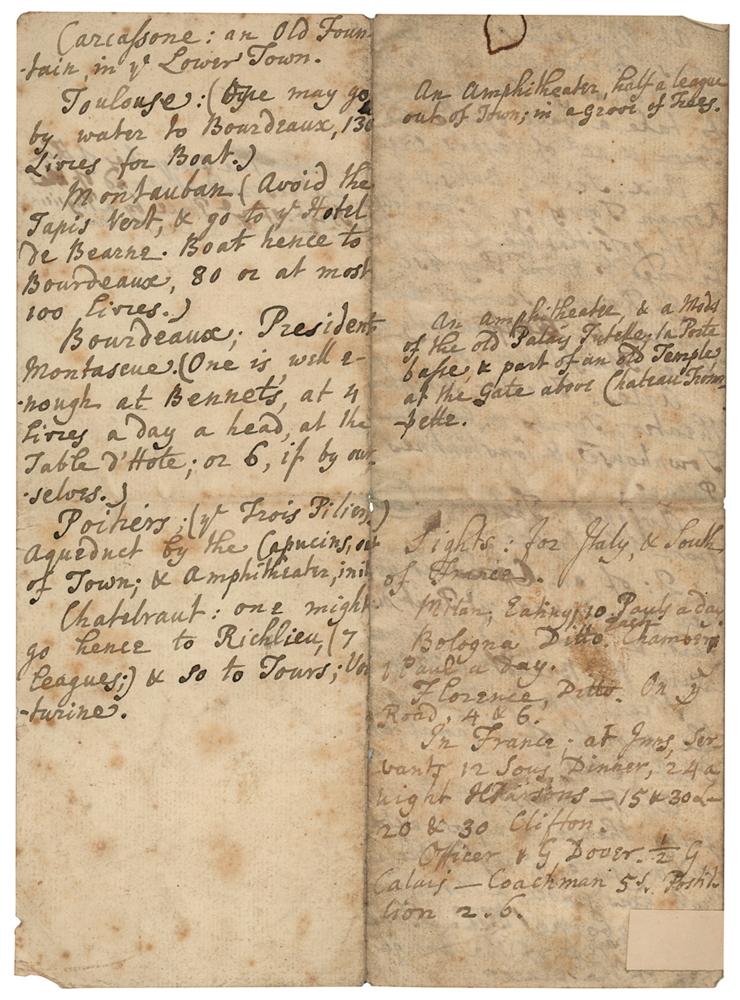 Carcassone: an Old Foun-
-tain, in yͤ Lower Town.
Toulouse: (One may go
by water to Bourdeaux, 130
Livres for Boat.)
Montauban (Avoid the
Tapis Vert, & go to yͤ Hotel
de Bearne. Boat hence to
Bourdeaux, 80 or at most
100 Livres.)
Bourdeaux; President
Montascue. (One is, well e-
-nough at Bennets, at 4
Livres a day a head, at the
Table d'Hote; or 6, if by our-
-selves.)
Poitiers; (yͤ Trois Piliers.)
Aqueduct by the Capucins, out
of Town; & Amphitheater, in it
Chatelraut: one might
go hence to Richlieu, (7
Leagues;) & so to Tours; Vou
-turine.
An Amphitheater, half a league
out of Town; in a Grove of Trees.
An Amphitheatre, & a Mods
of the old Palais Tutelle; la Porte
base, & part of an old Temple,
at the Gate above Chateau Trom
-pette.
Sights: for Italy, & South
of France.
Milan, Eating, 10 Pauls a day
Bologna Ditto. Chambers
each
1 Paul a day.
Florence, Ditto. On yͤ
Road, 4 & 6.
In France; at Inns, Ser-
vants 12 Sous Dinner, 24 a
night — 15 & 30
20 & 30 Clifton.
Officer G, Dover. ½ G
Calais — Coachman 5s. Postil-
lion 2.6.